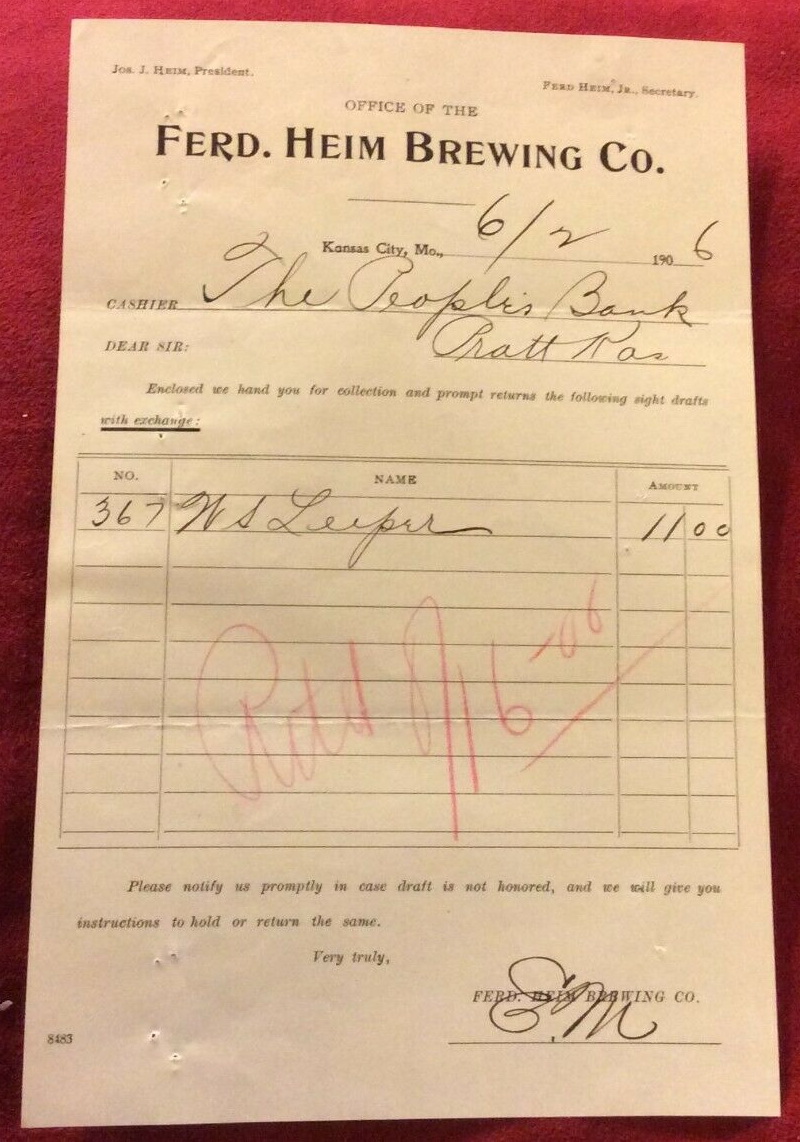 Jos. J. Heim, President.
Ferd Heim, Jr., Secretary.
OFFICE OF THE
FERD. HEIM BREWING CO.
Kansas City, Mo., 6/2 1906
CASHIER The Peoples Bank
DEAR SIR: Pratt Kas
Enclosed we hand you for collection and prompt returns the following sight drafts
with exchange:
NO. NAME AMOUNT
367 W S Leeper 11 00
Rétd 8/16-06
Please notify us promptly in case draft is not honored, and we will give you
instructions to hold or return the same.
Very truly,
FERD. HEIM BREWING CO.
E.M
8483